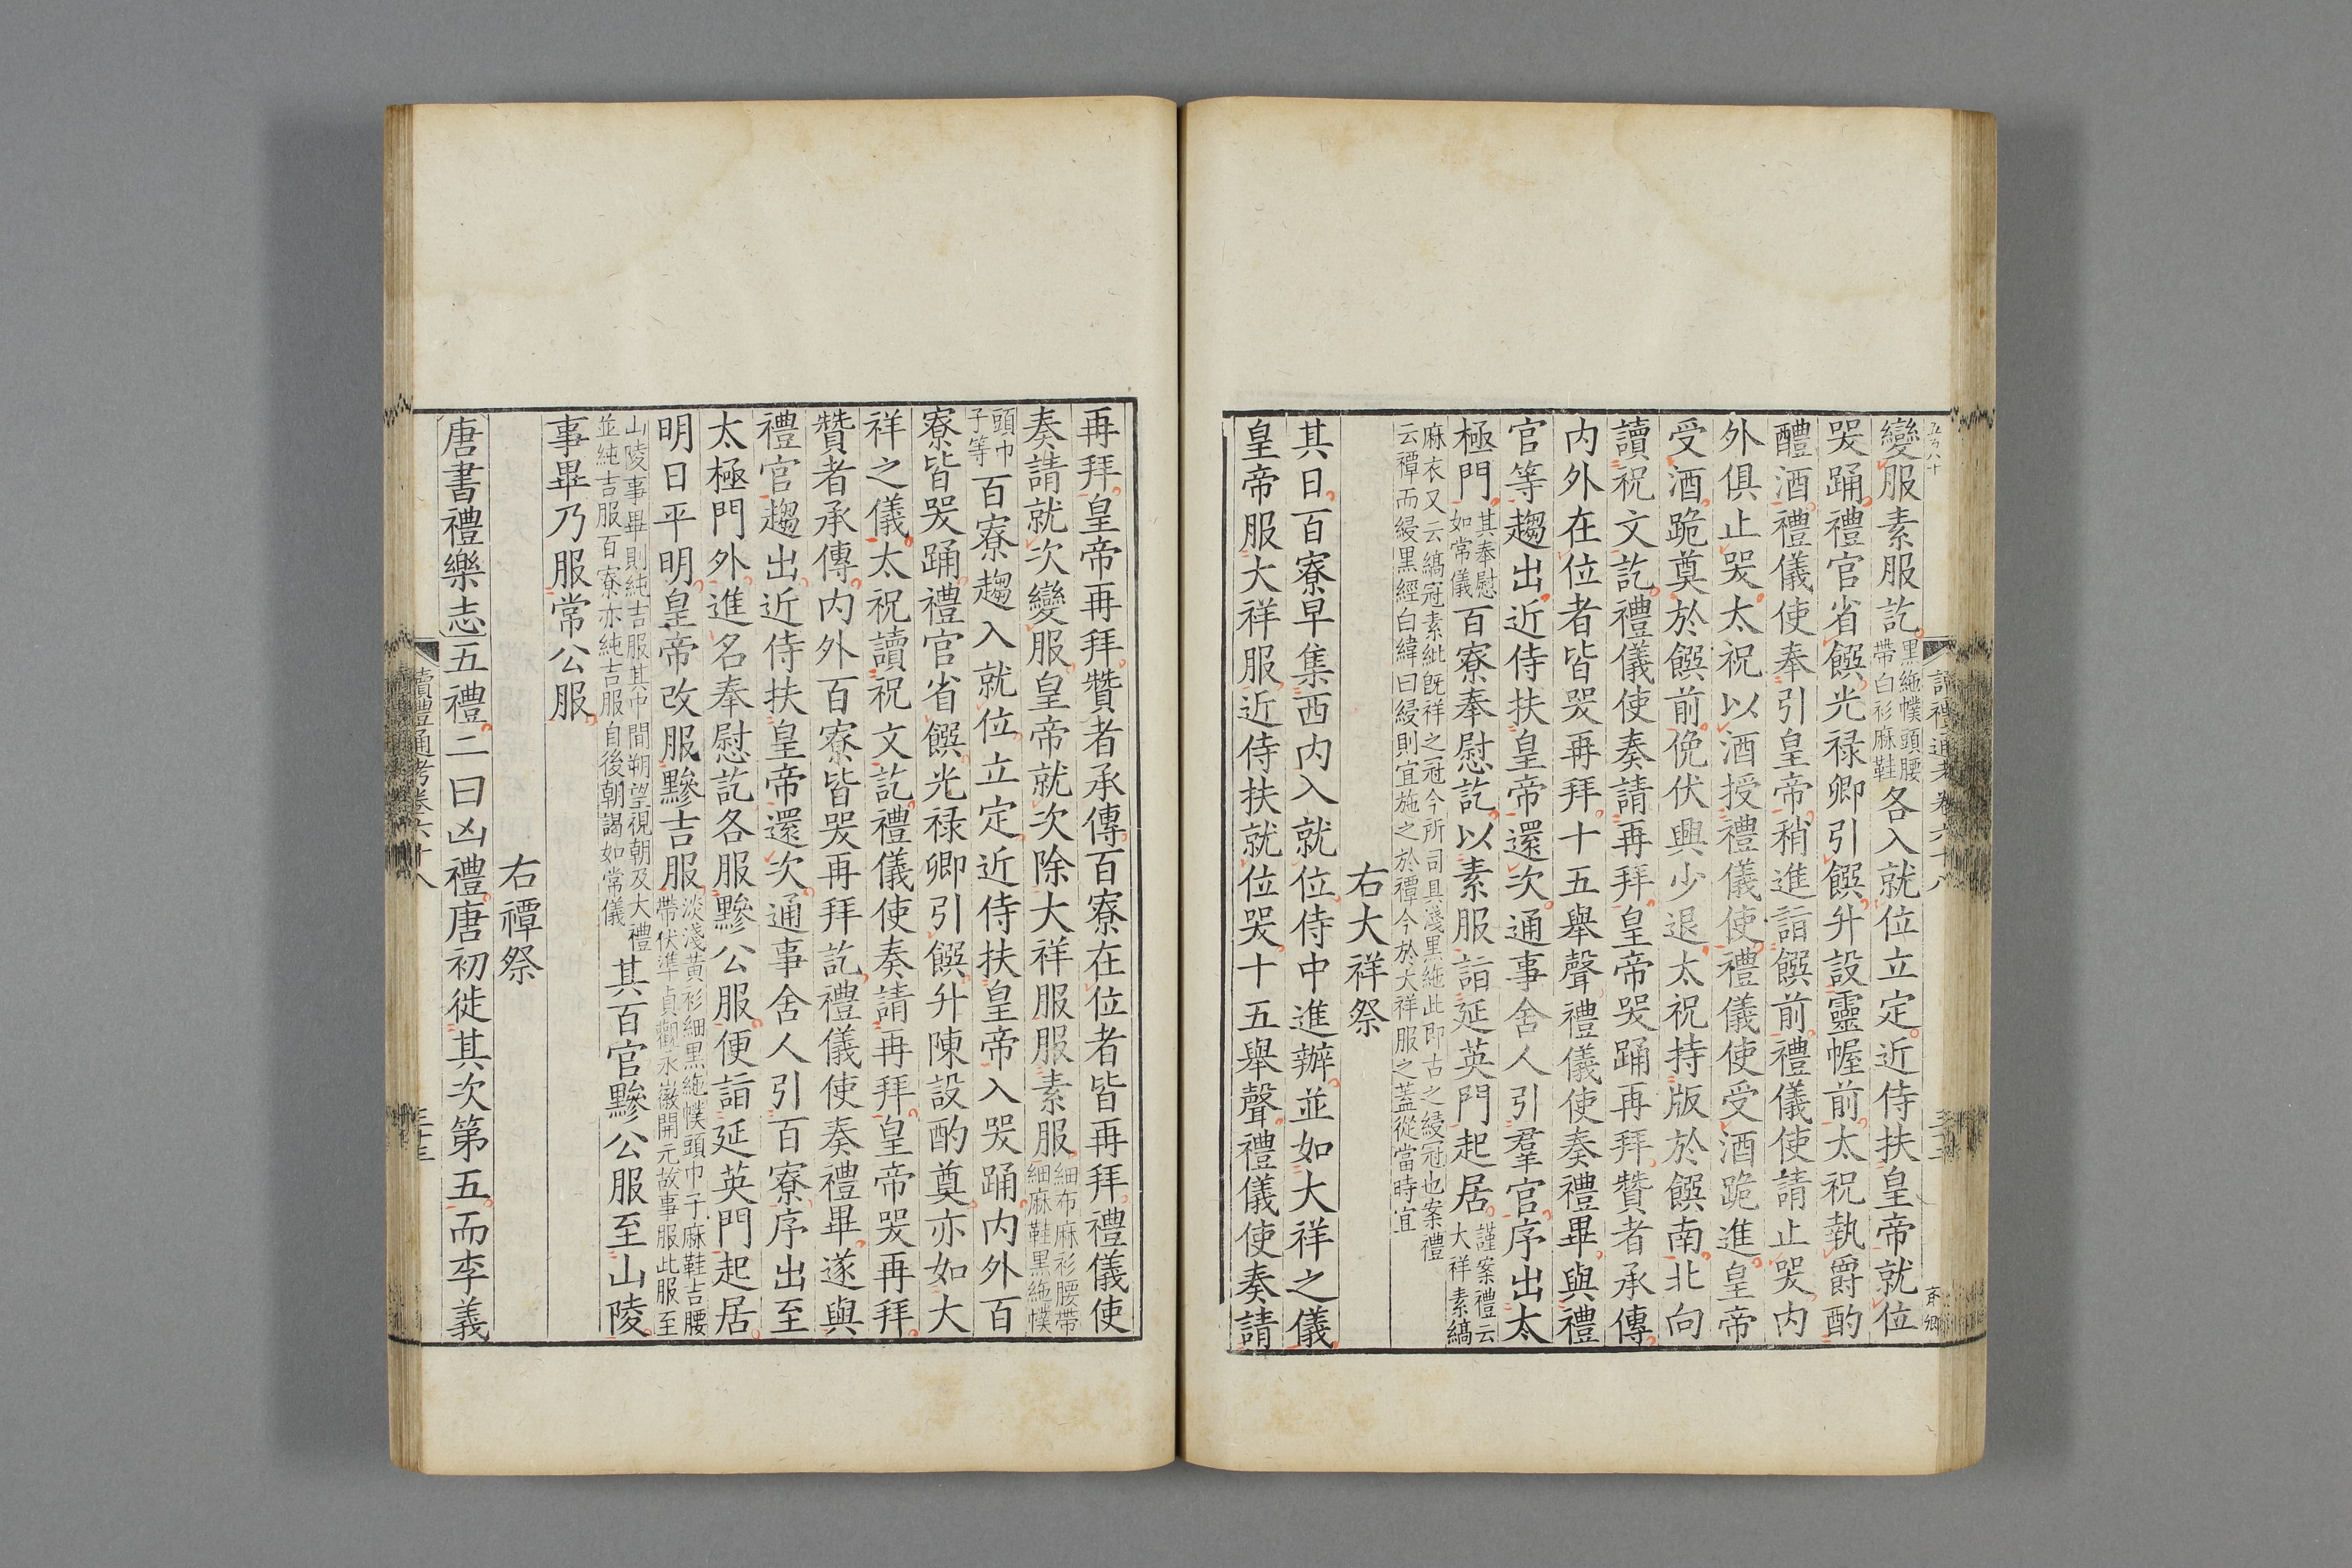 變服素服訖黑絁幞頭腰帶白衫麻鞋各入就位立定近侍扶皇帝就位
哭踊禮官省饌光禄卿引饌升設靈幄前太祝執爵酌
醴酒禮儀使奉引皇帝稍進詣饌前禮儀使請止哭内
外俱止哭太祝以酒授禮儀使禮儀使受酒跪進皇帝
受酒跪奠於饌前俛伏興少退太祝持版於饌南北向
讀祝文訖禮儀使奏請再拜皇帝哭踊再拜贊者承傳
内外在位者皆哭再拜十五舉聲禮儀使奏禮畢與禮
官等趨出近侍扶皇帝還次通事舍人引羣官序出太
極門其奉慰如常儀百寮奉慰訖以素服詣延英門起居謹案禮云大祥素縞
麻衣又云縞冠素紕旣祥之冠今所司具淺黑絁此即古之綅冠也案禮
云禫而綅黑經白緯曰綅則宜施之於禫今於大祥服之蓋從當時宜
右大祥祭
其日百寮早集西内入就位侍中進辦並如大祥之儀
皇帝服大祥服近侍扶就位哭十五舉聲禮儀使奏請
再拜皇帝再拜贊者承傳百寮在位者皆再拜禮儀使
奏請就次變服皇帝就次除大祥服服素服細布麻衫腰帶細麻鞋黑絁幞
頭巾子等百寮趨入就位立定近侍扶皇帝入哭踊内外百
寮皆哭踊禮官省饌光禄卿引饌升陳設酌奠亦如大
祥之儀太祝讀祝文訖禮儀使奏請再拜皇帝哭再拜
贊者承傳内外百寮皆哭再拜訖禮儀使奏禮畢遂與
禮官趨出近侍扶皇帝還次通事舍人引百寮序出至
太極門外進名奉慰訖各服黲公服便詣延英門起居
明日平明皇帝改服黲吉服淡淺黃衫細黑絁幞頭巾子麻鞋吉腰帶伏準貞觀永徽開元故事服此服至
山陵事畢則純吉服其中間朔望視朝及大禮並純吉服百寮亦純吉服自後朝謁如常儀其百官黲公服至山陵
事畢乃服常公服
右禫祭
唐書禮樂志五禮二曰凶禮唐初徙其次第五而李義
讀禮通考卷六十八